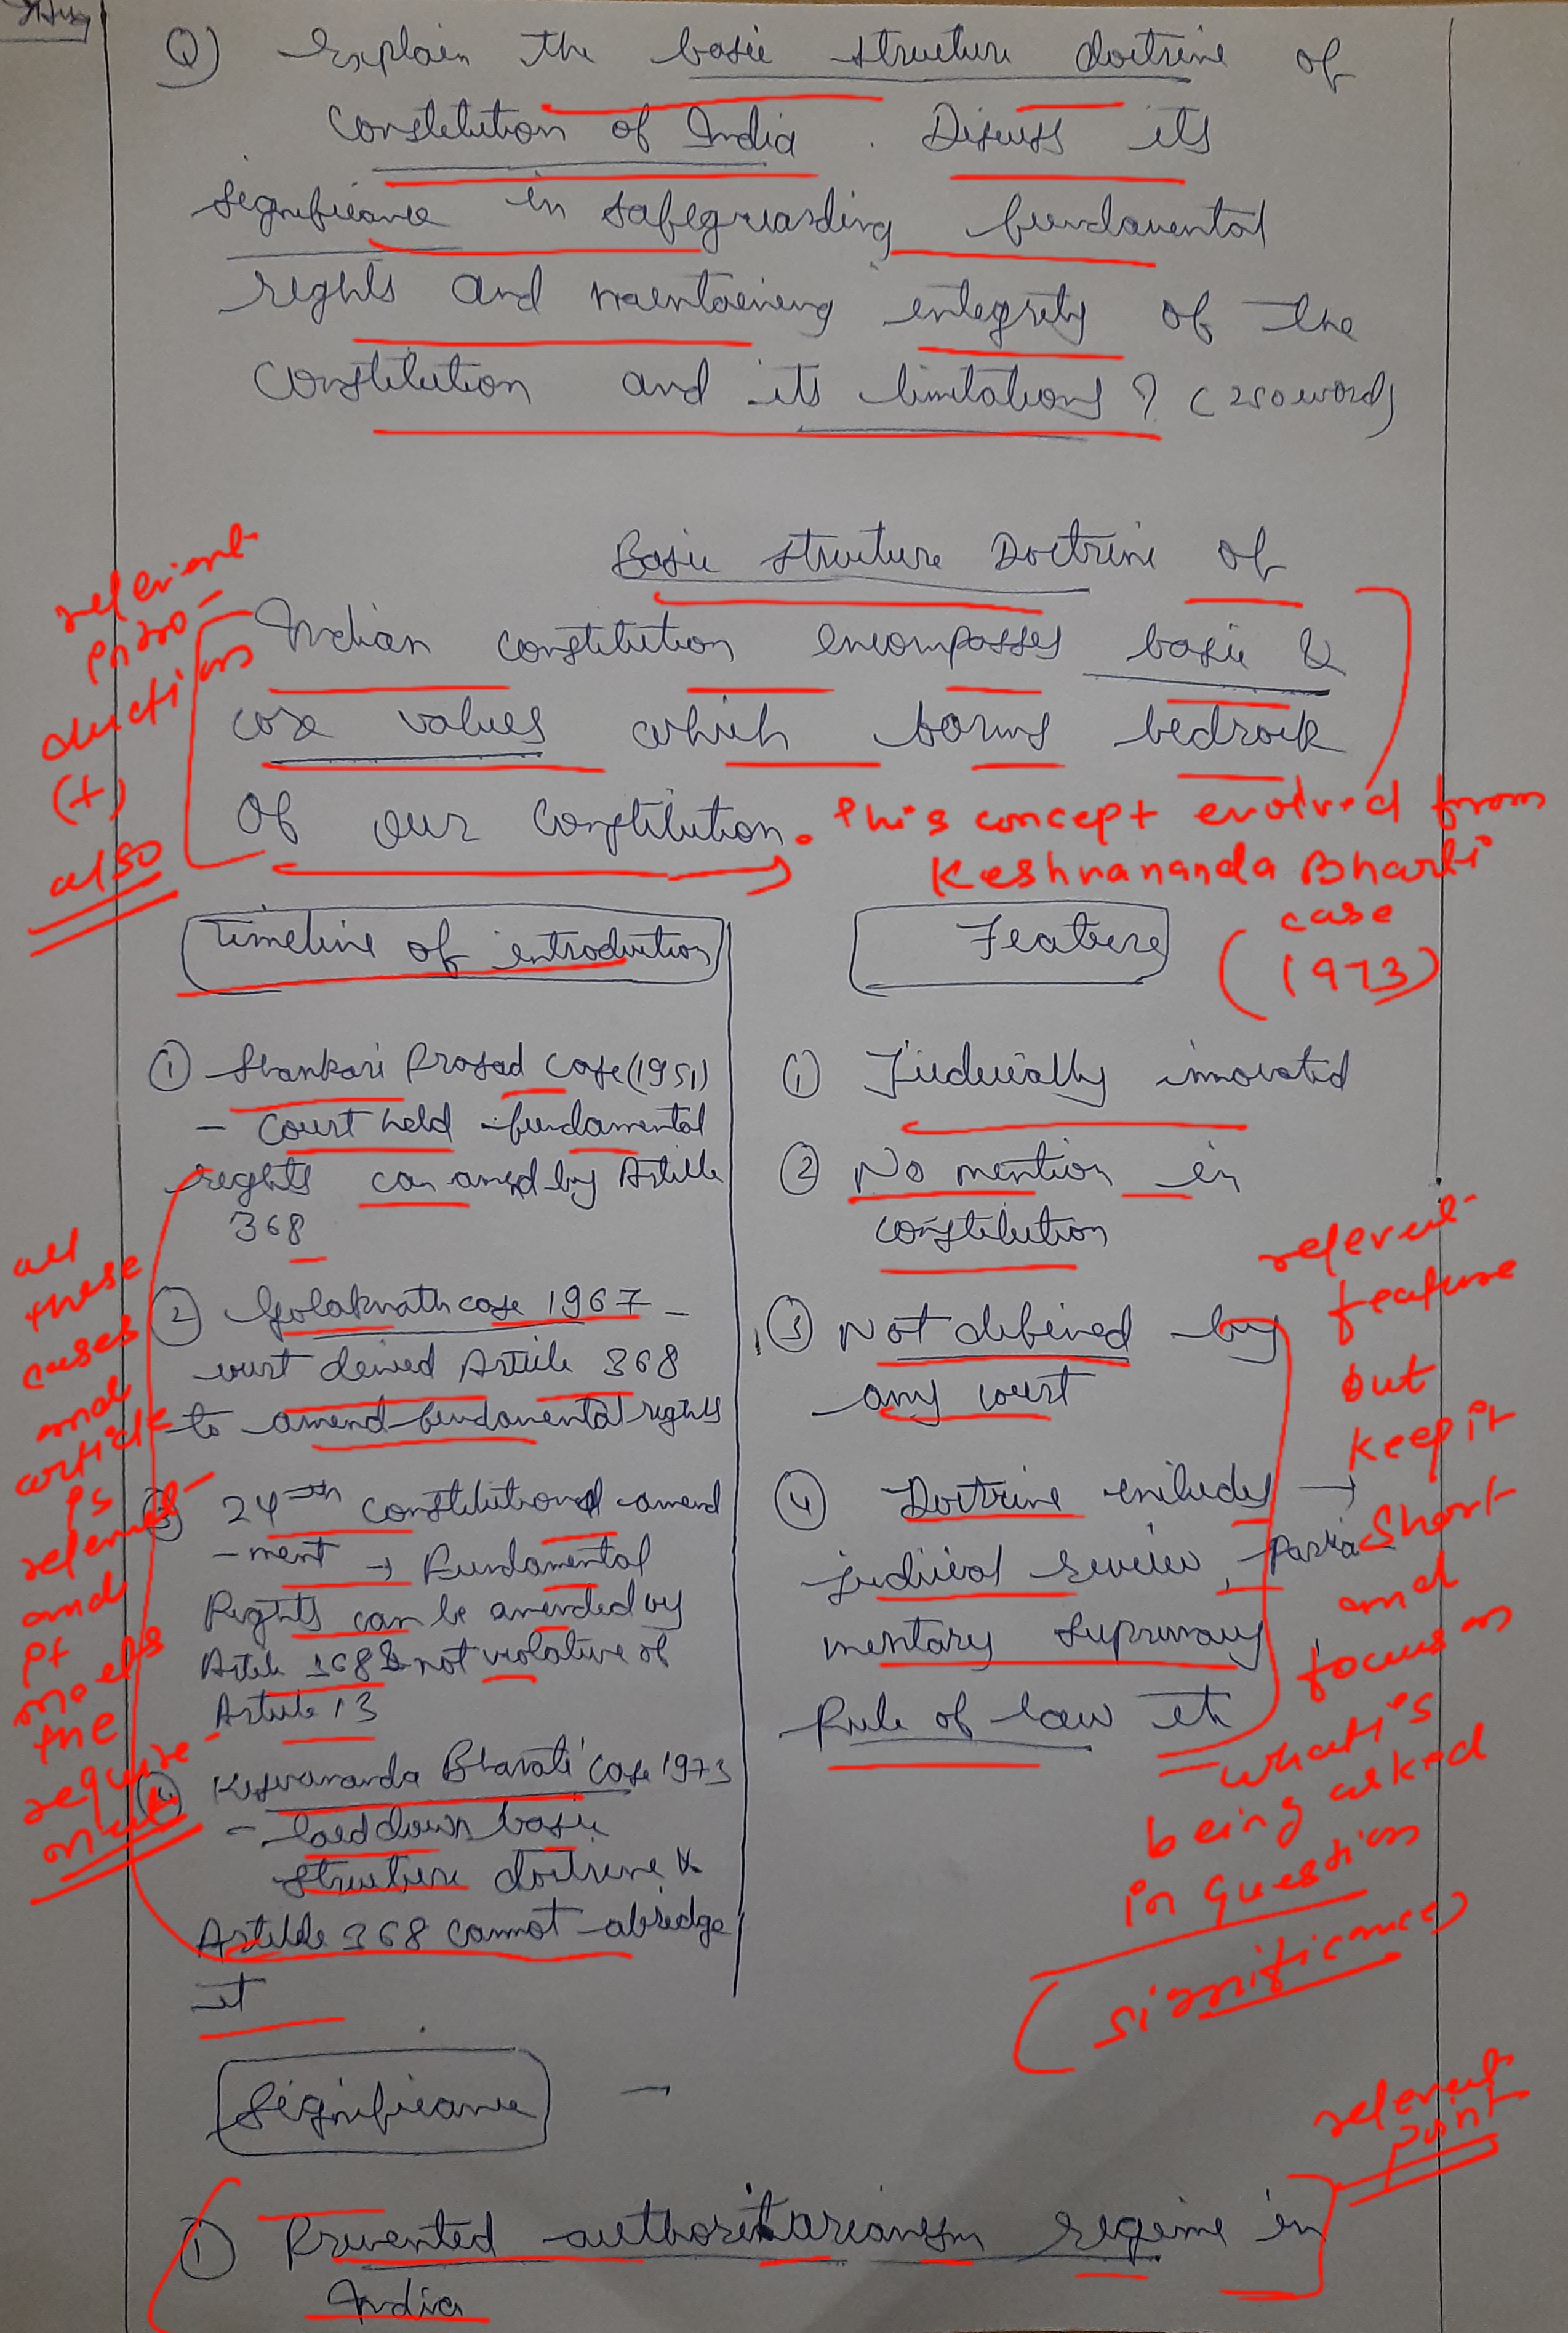 Q) Explain the basic structure doctrine of
Constitution of India. Discuss its
significance in safeguarding fundamental
rights and maintaining integrity of the
Constitution and its limitations? (250 words)
Basic structure Doctrine of
Indian constitution encompasses basic &
core values which forms bedrock
of our Constitution.
This concept evolved from
Keshvananda Bharti
case
(1973)
relevent
intro-
duction
(+)
also
Timeline of introduction
① Shankari Prasad Case (1951)
- Court held fundamental
rights can amend by Article
368
② Golaknath case 1967 -
court denied Article 368
to amend fundamental rights
③ 24th constitutional amend
-ment → Fundamental
Rights can be amended by
Article 368 & not violative of
Article 13
④ Kesvananda Bharati Case 1973
- laid down basic
structure doctrine &
Article 368 cannot abridge
it
all
these
cases
and
article
is
relevent
and
it
meets
the
require-
ment
Feature
① Judicially innovated
② No mention in
constitution
③ Not defined by
any court
④ Doctrine includes →
judicial review, Parlia-
mentary supremacy
Rule of law etc
relevent
feature
but
keep it
short
and
focus on
what is
being asked
in question
(significance)
Significance →
① Prevented authoritarianism regime in
India
relevent
point